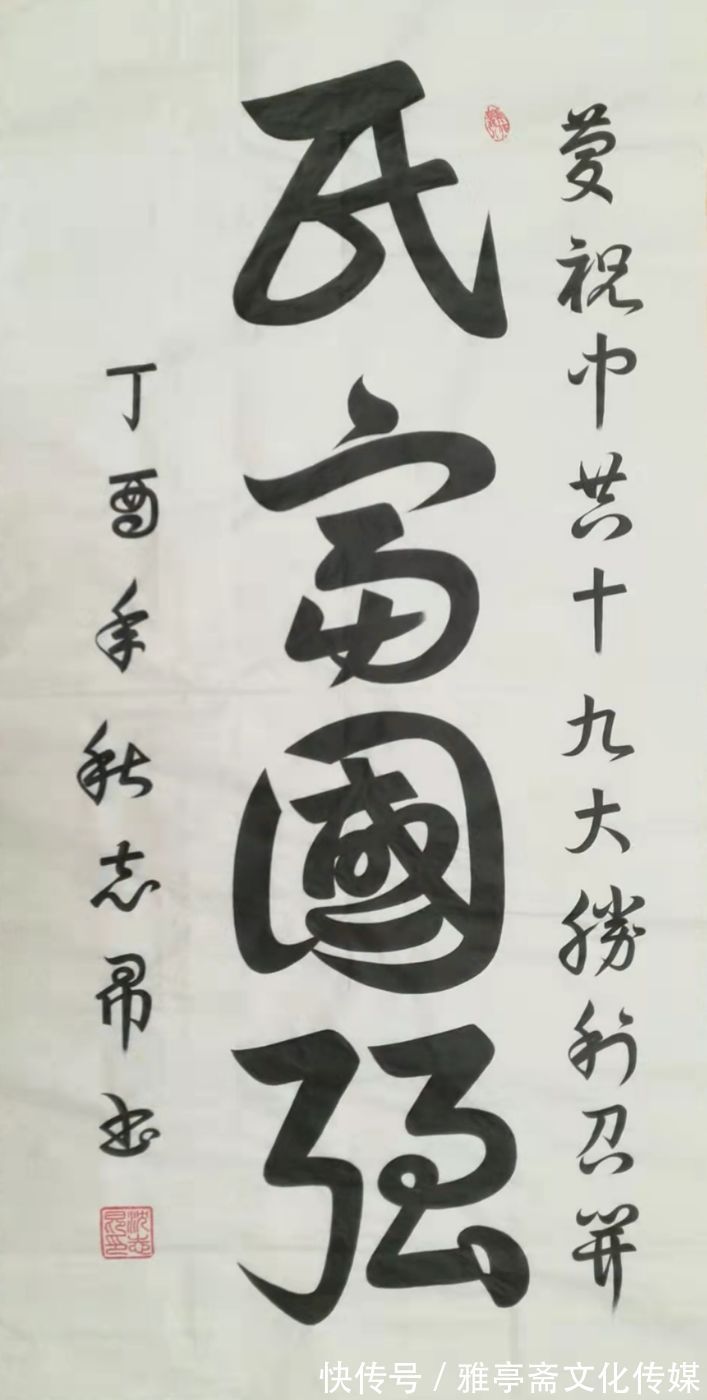 慶祝中共十九大勝利召開
民富國强
丁酉年秋志書
快传号 / 雅亭斋文化传媒